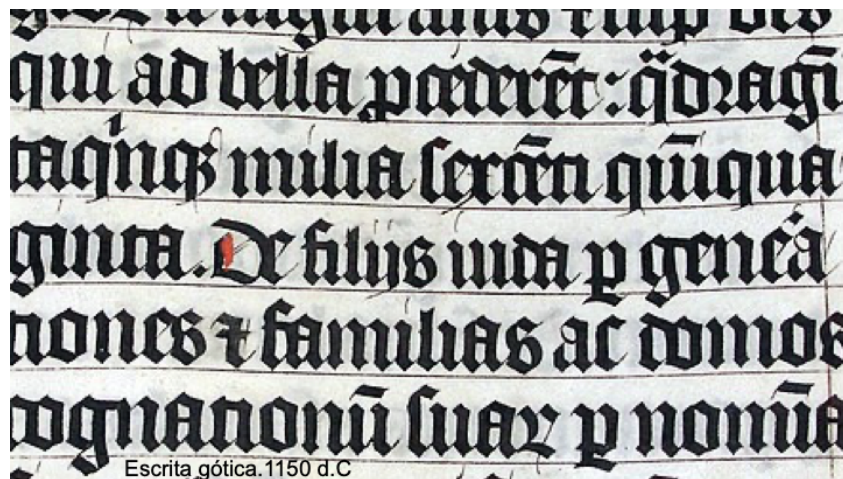 qui ad bella ꝓcederēt: qͣdragī
taqͥnqꝫ milia sexcēti qūiqua
ginta. De filijs iuda ꝑ gen̄ea
tiones ⁊ familias ac domos
cognationū suaꝝ ꝑ nomīa
Escrita gótica.1150 d.C